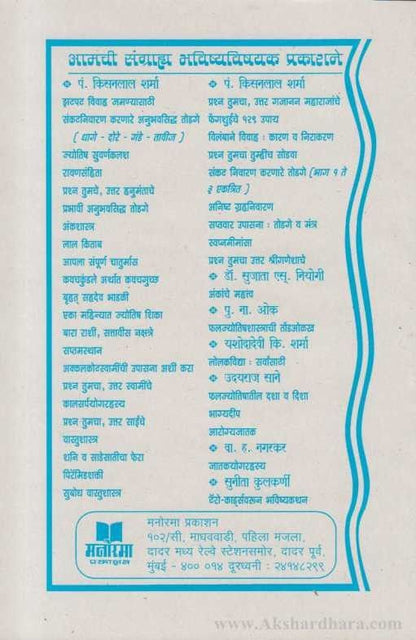 आमची संग्राह्य भविष्यविषयक प्रकाशने
❖ पं. किसनलाल शर्मा
झटपट विवाह जमण्यासाठी
संकटनिवारण करणारे अनुभवसिद्ध तोडगे
( धागे - दोरे - गंडे - तावीज )
ज्योतिष सुवर्णकलश
रावणसंहिता
प्रश्न तुमचे, उत्तर हनुमंताचे
प्रभावी अनुभवसिद्ध तोडगे
अंकशास्त्र
लाल किताब
आपला संपूर्ण चातुर्मास
कवचकुंडले अर्थात कवचगुच्छ
बृहत् सहदेव भाडळी
एका महिन्यात ज्योतिष शिका
बारा राशी, सत्तावीस नक्षत्रे
सप्तमस्थान
अक्कलकोटस्वामींची उपासना अशी करा
प्रश्न तुमचा, उत्तर स्वामींचे
कालसर्पयोगरहस्य
प्रश्न तुमचा, उत्तर साईंचे
वास्तुशास्त्र
शनि व साडेसातीचा फेरा
पिरॅमिडशक्ती
सुबोध वास्तुशास्त्र
❖ पं. किसनलाल शर्मा
प्रश्न तुमचा, उत्तर गजानन महाराजांचे
फेंगशुईचे १२९ उपाय
विलंबाने विवाह : कारण व निराकरण
प्रश्न तुमचा तुम्हीच सोडवा
संकट निवारण करणारे तोडगे (भाग १ ते
३ एकत्रित)
अनिष्ट ग्रहनिवारण
सप्तवार उपासना : तोडगे व मंत्र
स्वप्नमीमांसा
प्रश्न तुमचा उत्तर श्रीगणेशाचे
❖ डॉ. सुजाता एस्. नियोगी
अंकांचे महत्त्व
❖ पु. ना. ओक
फलज्योतिषशास्त्राची तोंडओळख
❖ यशोदादेवी कि. शर्मा
लोलकविद्या : सर्वांसाठी
❖ उदयराज साने
फलज्योतिषातील दशा व दिशा
भाग्यदीप
आरोग्यजातक
❖ वा. ह. नगरकर
जातकयोगरहस्य
❖ सुनीता कुलकर्णी
टॅरो-कार्ड्सवरून भविष्यकथन
मनोरमा
प्रकाशन
मनोरमा प्रकाशन
१०२/सी, माधववाडी, पहिला मजला,
दादर मध्य रेल्वे स्टेशनसमोर, दादर पूर्व,
मुंबई - ४०० ०१४ दूरध्वनी : २४१४८२९९
www.Akshardhara.com